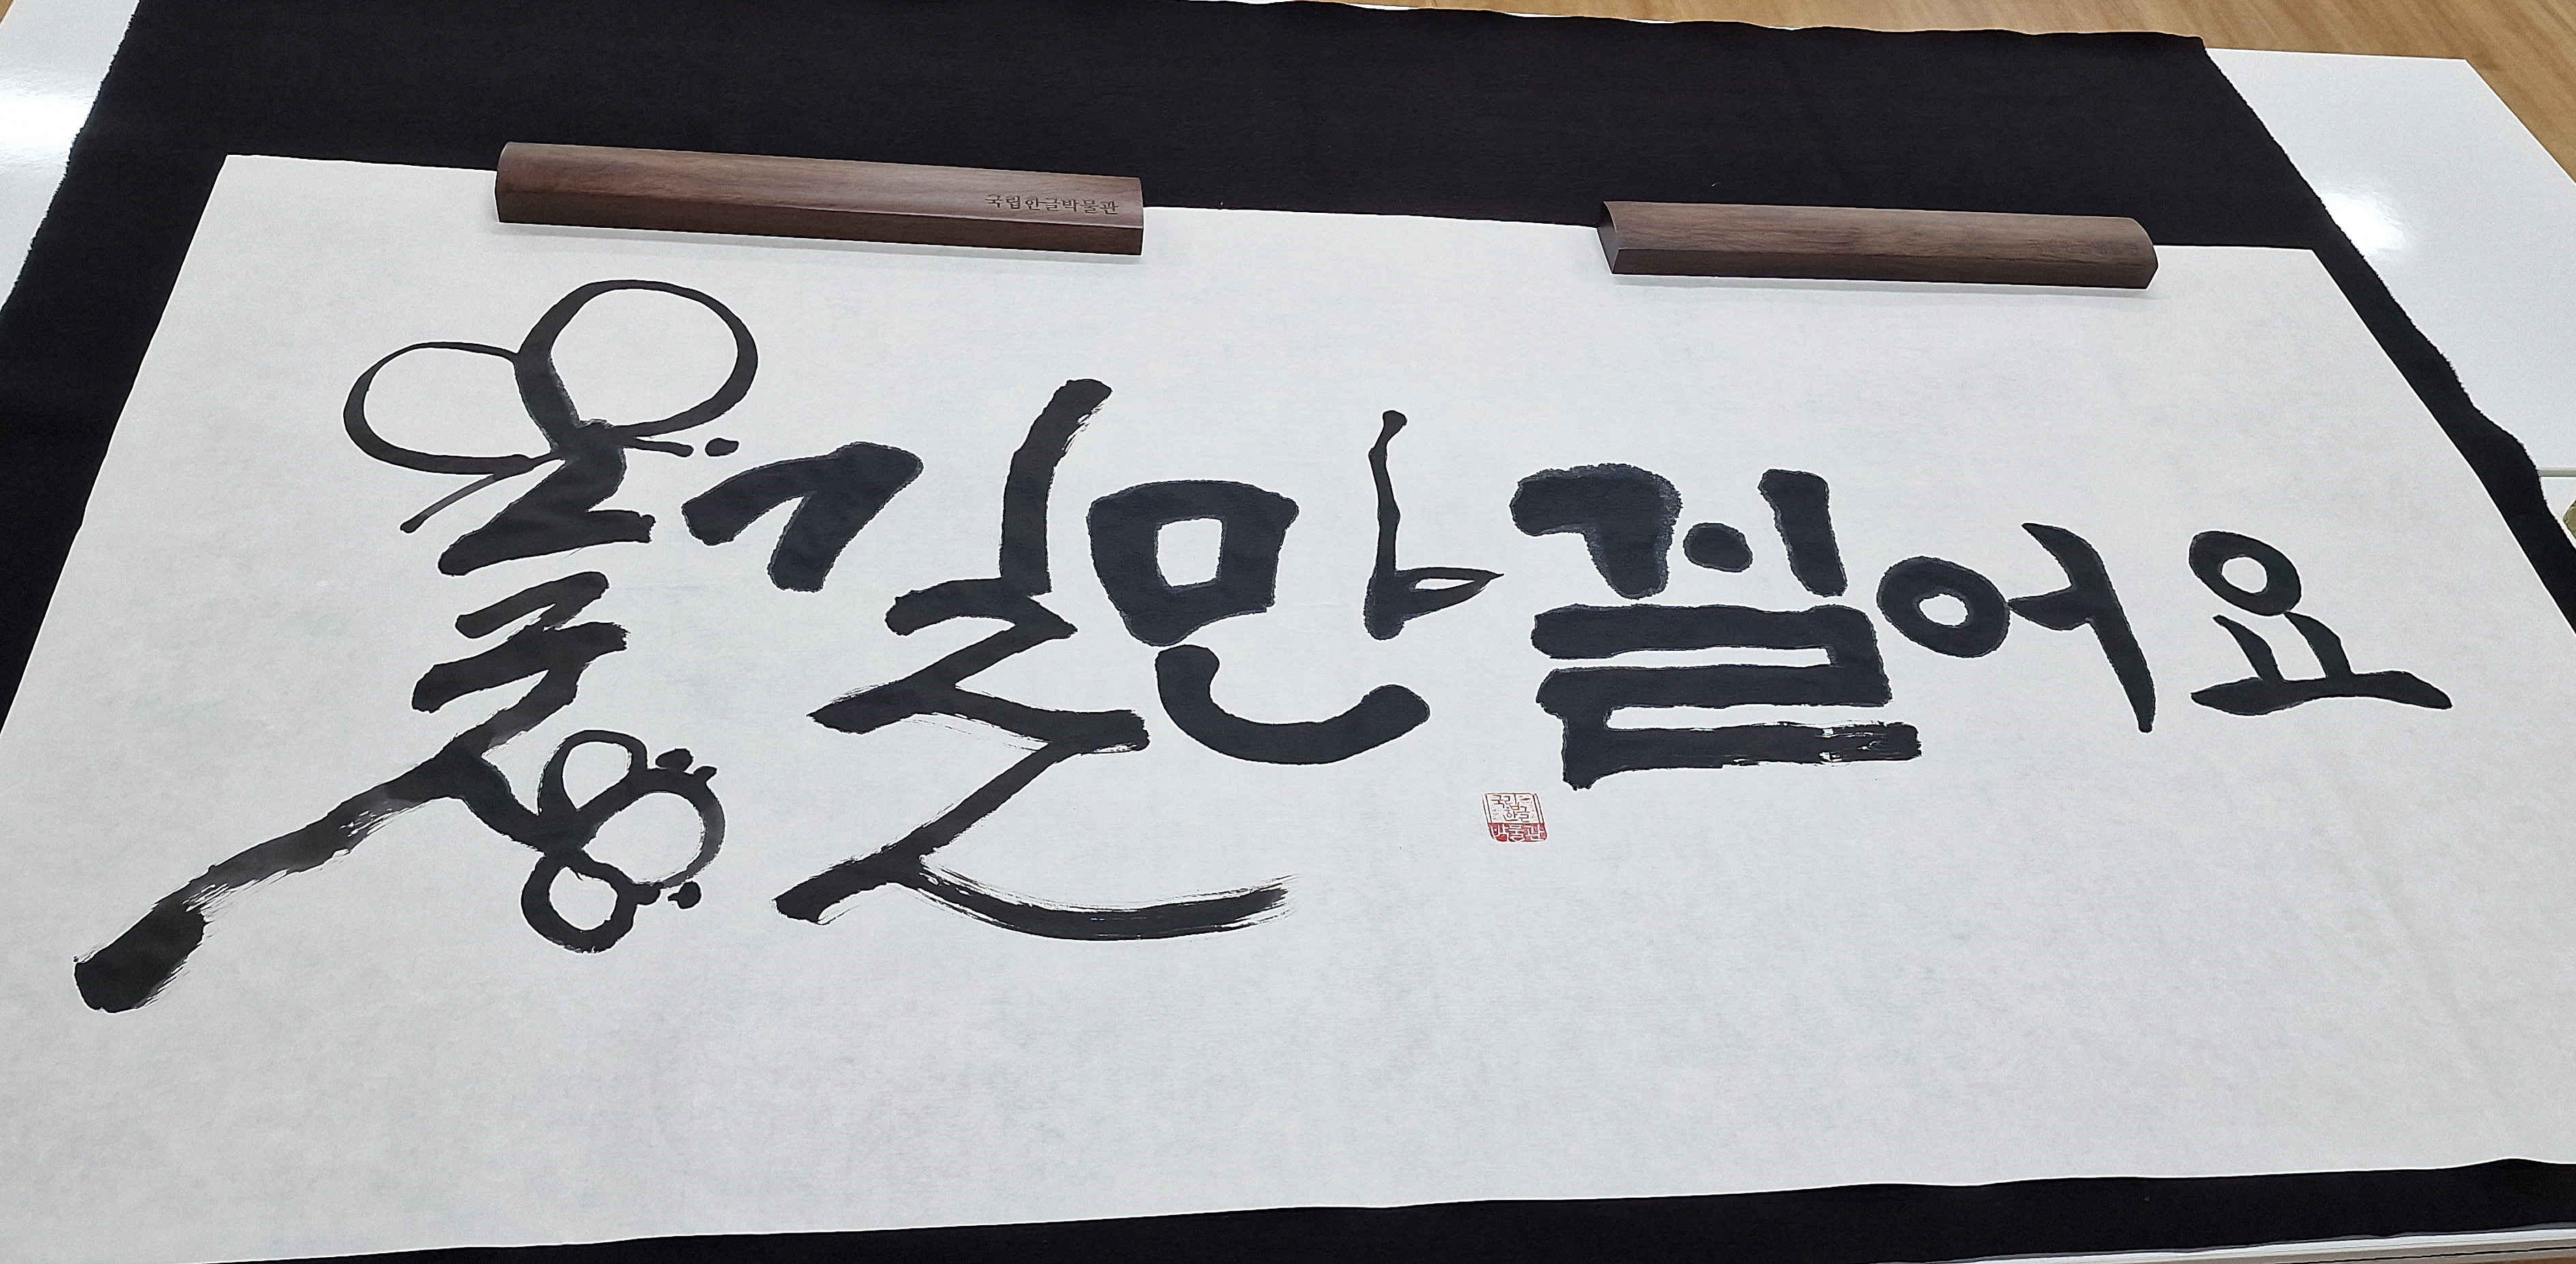 국립한글박물관
꽃길만 걸어요
국립
한글
박물관